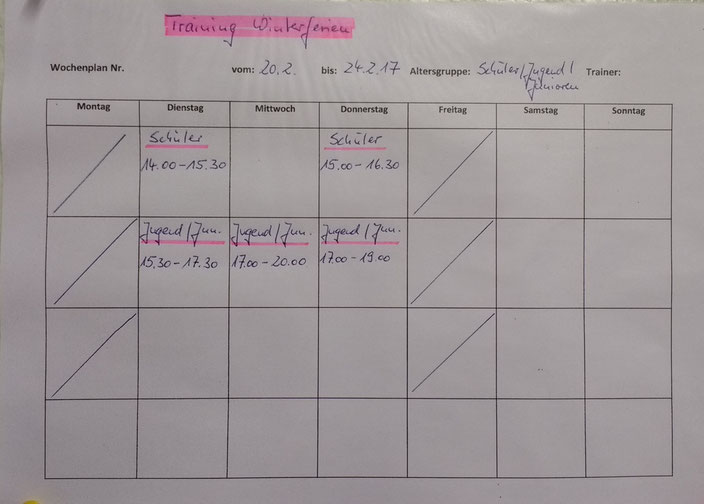 Training Winterferien
Wochenplan Nr. vom: 20.2. bis: 24.2.17 Altersgruppe: Schüler/Jugend/ Trainer:
Junioren
Montag Dienstag Mittwoch Donnerstag Freitag Samstag Sonntag
Schüler Schüler
14.00-15.30 15.00-16.30
Jugend/Jun. Jugend/Jun. Jugend/Jun.
15.30-17.30 17.00-20.00 17.00-19.00